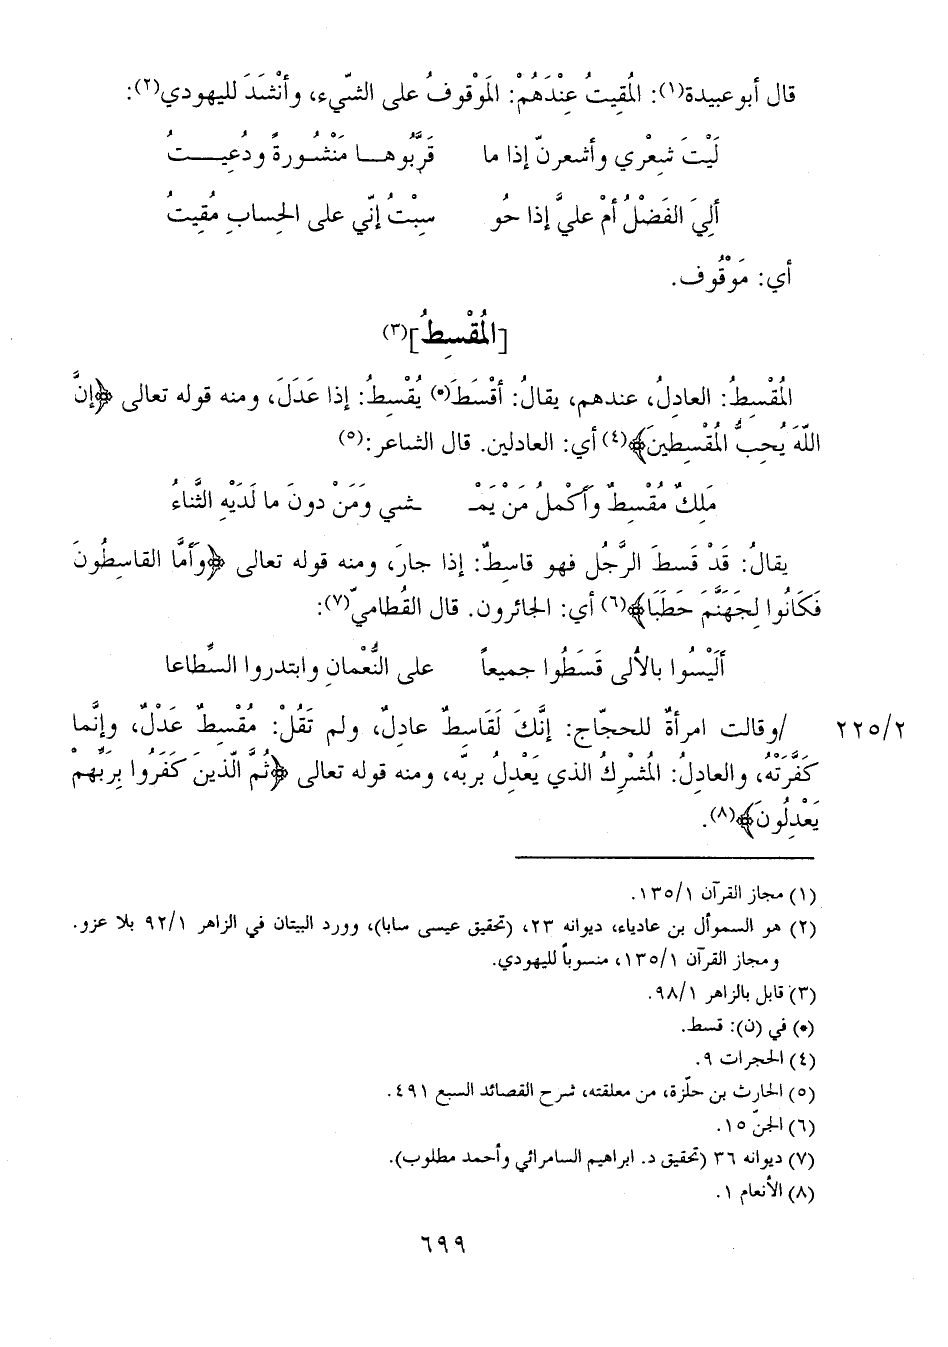 قال أبو عبيدة(١): المُقيتُ عِنْدَهُمْ: المَوْقوفُ على الشّيء، وأنْشَدَ لليهودي(٢):
لَيْتَ شِعْري وأشعرنّ إذا ما قَرَّبُوهــا مَنْشُورةً ودُعِيــتُ
أَلِيَ الفَضْلُ أمْ عليَّ إذا حُو سِبْتُ إنّي على الحِسابِ مُقِيتُ
أي: مَوْقُوف.
[المُقْسِطُ](٣)
المُقْسِطُ: العادِلُ، عندهم، يقالُ: أقْسَطَ(*) يُقْسِطُ: إذا عَدَلَ، ومنه قوله تعالى ﴿إنَّ
اللّهَ يُحِبُّ المُقْسِطينَ﴾(٤) أي: العادلين. قال الشاعر:(٥)
مَلِكٌ مُقْسِطٌ وَأَكْملُ مَنْ يَمْـ ـشي وَمَنْ دونَ ما لَدَيْهِ الثَّناءُ
يقالُ: قَدْ قَسطَ الرَّجُل فهو قاسِطٌ: إذا جارَ، ومنه قوله تعالى ﴿وَأَمَّا القاسِطُونَ
فَكَانُوا لِجَهَنَّمَ حَطَبَا﴾(٦) أي: الجائرون. قال القُطاميّ(٧):
أَلَيْسُوا بالأُلى قَسَطُوا جميعاً على النُّعْمانِ وابتدروا السِّطاعا
٢٢٥/٢ /وقالت امرأةٌ للحجّاج: إنَّكَ لَقَاسِطٌ عادِلٌ، ولم تَقُلْ: مُقْسِطٌ عَدْلٌ، وإنَّما
كَفَّرَتْهُ، والعادِلُ: المُشْرِكُ الذي يَعْدِلُ بربّه، ومنه قوله تعالى ﴿ثُمَّ الّذينَ كَفَرُوا بِرَبِّهِمْ
يَعْدِلُونَ﴾(٨).
(١) مجاز القرآن ١٣٥/١.
(٢) هو السموأل بن عادياء، ديوانه ٢٣، (تحقيق عيسى سابا)، وورد البيتان في الزاهر ٩٢/١ بلا عزو.
ومجاز القرآن ١٣٥/١، منسوباً لليهودي.
(٣) قابل بالزاهر ٩٨/١.
(*) في (ن): قسط.
(٤) الحجرات ٩.
(٥) الحارث بن حلّزة، من معلقته، شرح القصائد السبع ٤٩١.
(٦) الجنّ ١٥.
(٧) ديوانه ٣٦ (تحقيق د. ابراهيم السامرائي وأحمد مطلوب).
(٨) الأنعام ١.
٦٩٩